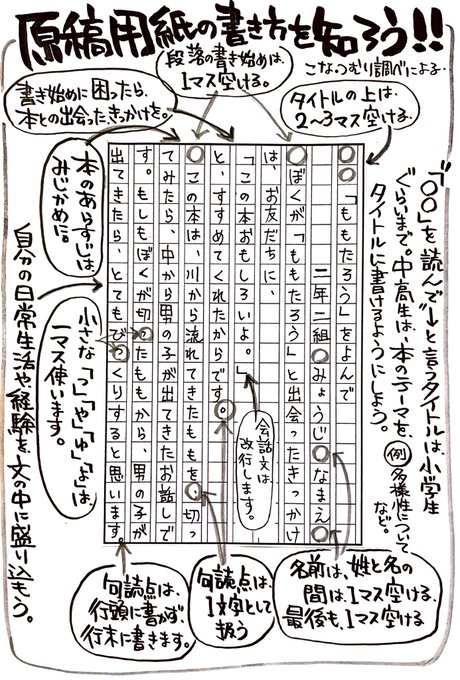 原稿用紙の書き方を知ろう!!
こなつむり調べによる…
段落の書き始めは、
1マス空ける。
書き始めに困ったら、
本との出会ったきっかけを。
タイトルの上は、
2～3マス空ける。
「〇〇」を読んで」と言うタイトルは、小学生
ぐらいまで。中高生は、本のテーマを、
タイトルに書けるようにしよう。
例 多様性について
など。
「ももたろう」をよんで
二年二組 みょうじ なまえ
ぼくが「ももたろう」と出会ったきっかけ
は、お友だちに、
「この本おもしろいよ。」
と、すすめてくれたからです。
この本は、川から流れてきたももを、切っ
てみたら、中から男の子が出てきたお話しで
す。もしもぼくが切ったももから、男の子が
出てきたら、とてもびっくりすると思います。
会話文は
改行します。
本のあらすじは、
みじかめに。
小さな「っ」「ゃ」「ゅ」「ょ」は、
一マス使います。
自分の日常生活や、経験を、文の中に盛り込もう。
名前は、姓と名の
間は、1マス空ける、
最後も、1マス空ける
句読点は、
1文字として
扱う
句読点は、
行頭に書かず、
行末に書きます。